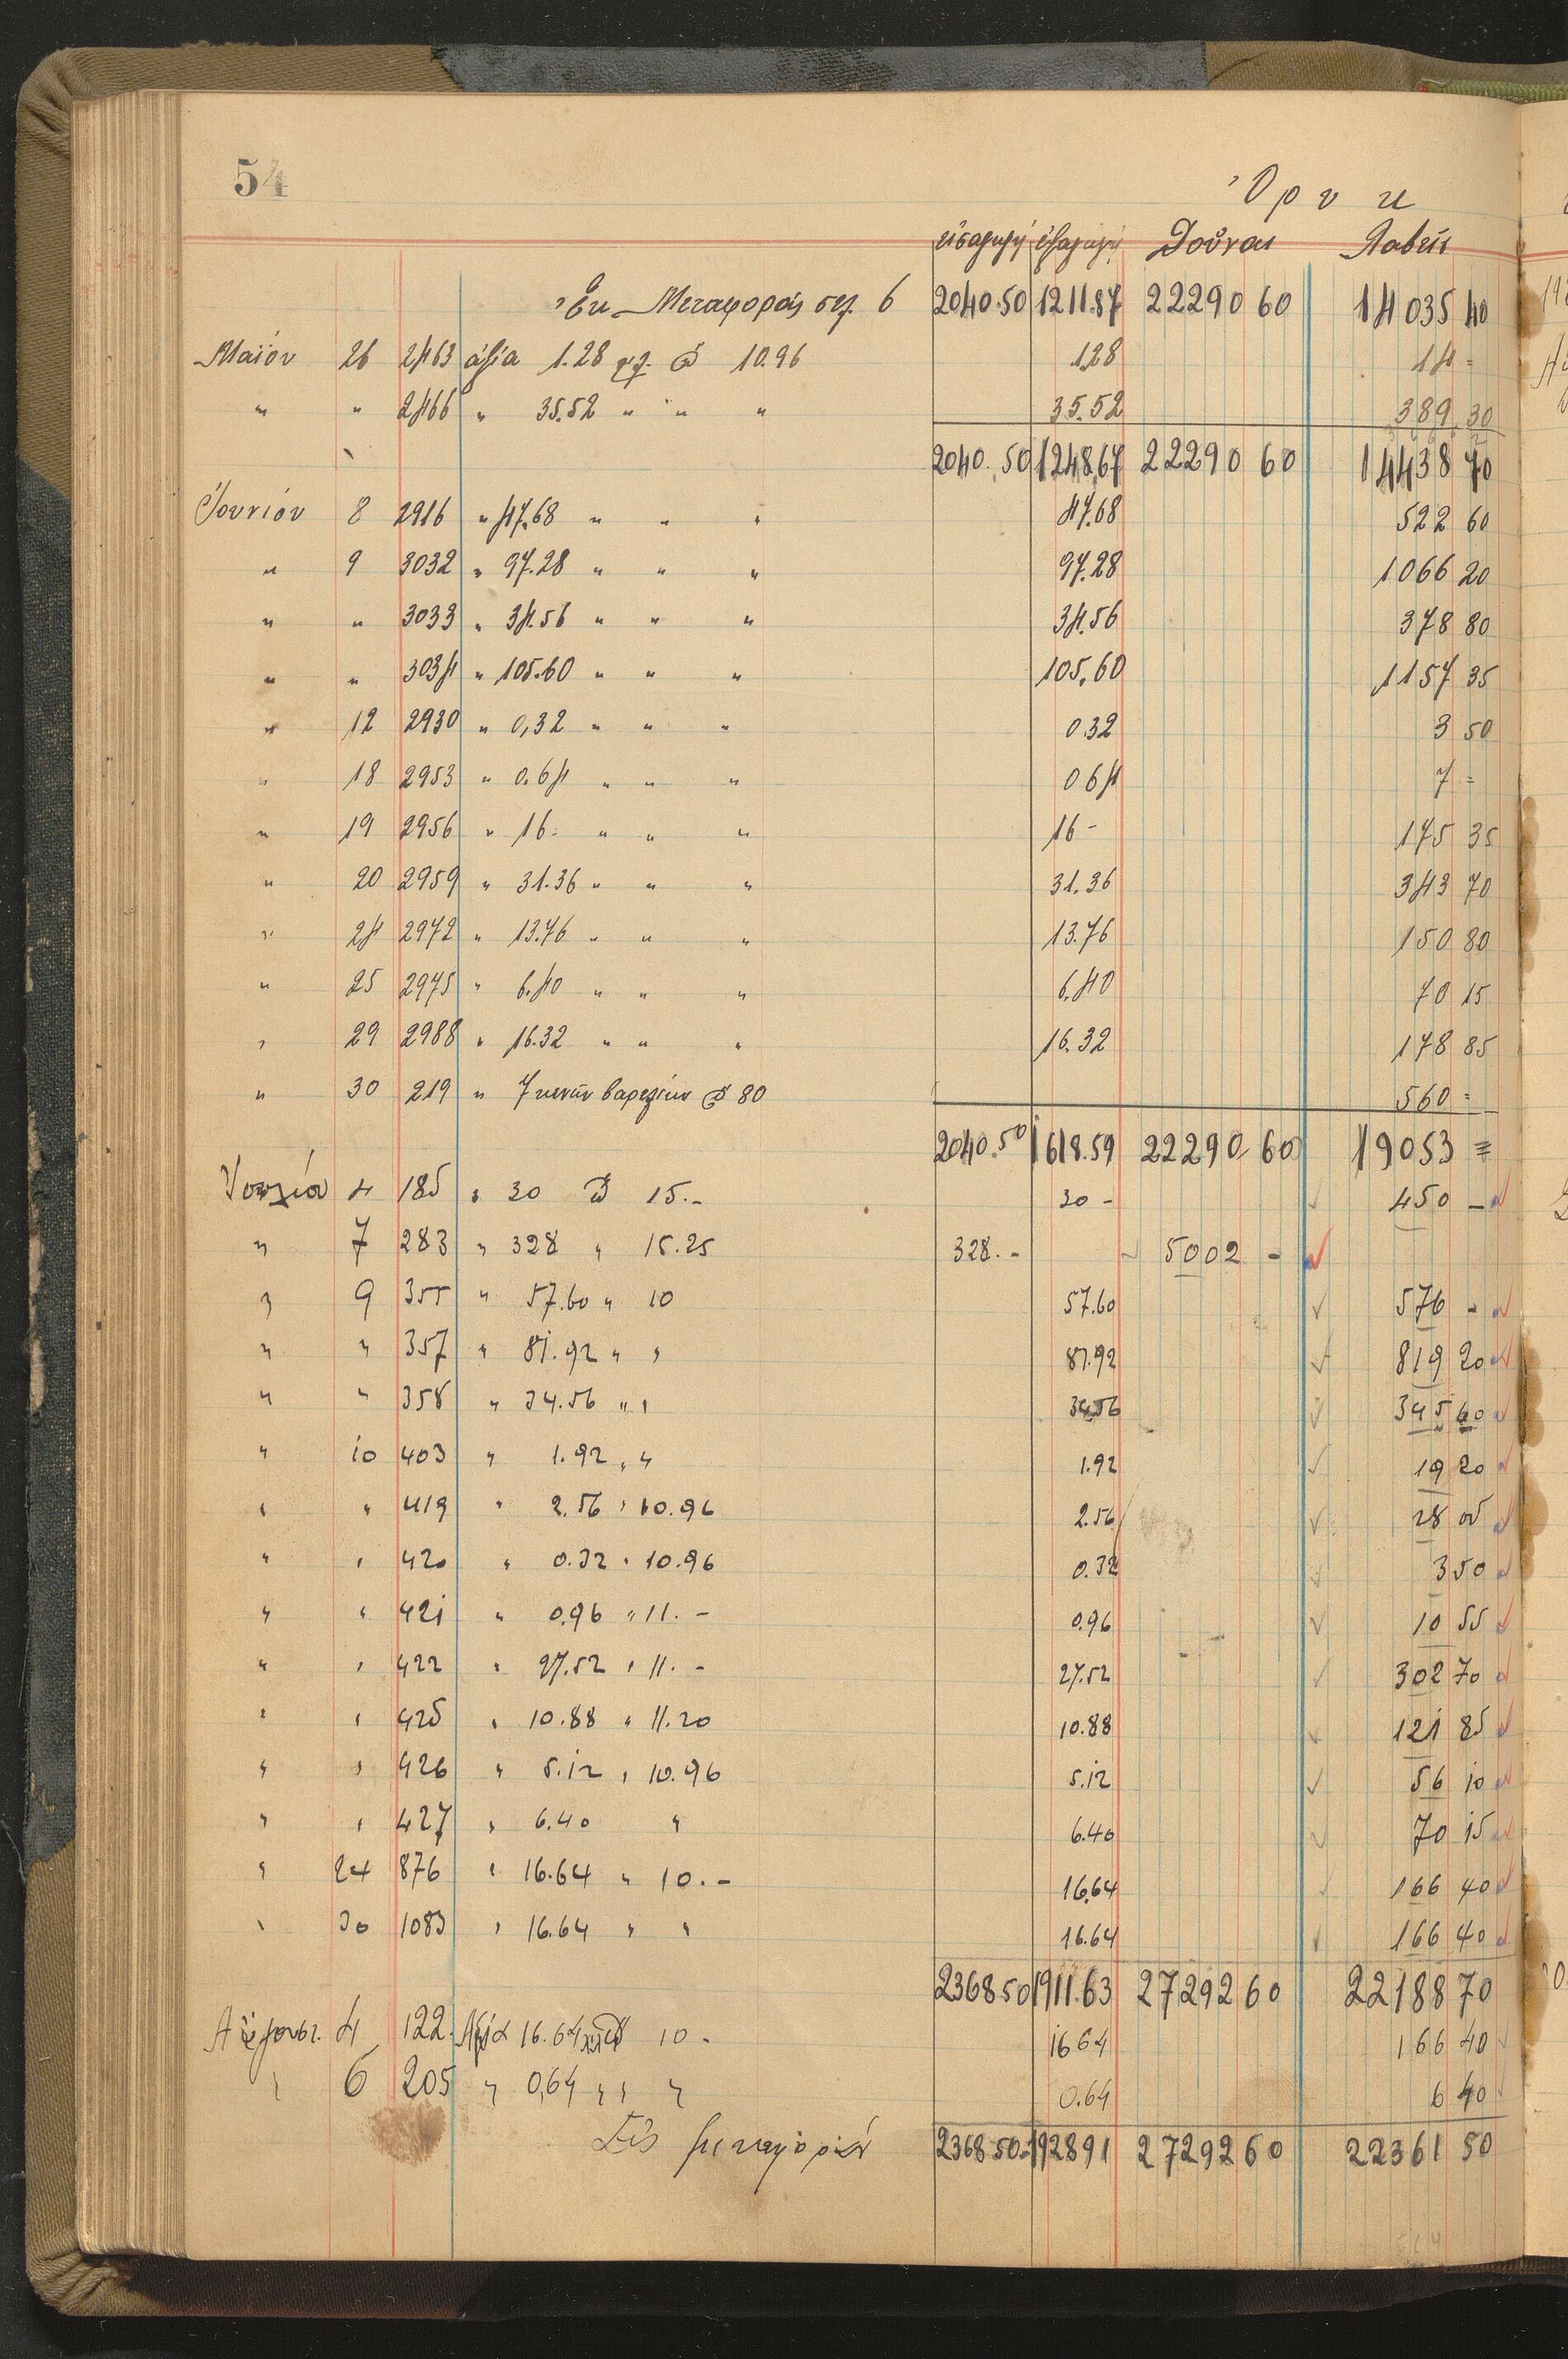 54
Ὄρνκ
εἰσαγωγή ἐξαγωγή Δοῦναι Λαβεῖν
Ἐκ Μεταφορᾶς σελ. 6 2040.50 1211.87 22290 60 14035 40
Μαΐου 26 2463 ἀξία 1.28 @ 10.96 1.28 14 =
" " 2466 " 35.52 " " " 35.52 389 30
2040.50 1248.67 22290 60 14438 70
Ἰουνίου 8 2916 " 47.68 " " " 47.68 522 60
" 9 3032 " 97.28 " " " 97.28 1066 20
" " 3033 " 34.56 " " " 34.56 378 80
" " 3034 " 105.60 " " " 105.60 1157 35
" 12 2930 " 0,32 " " " 0.32 3 50
" 18 2953 " 0.64 " " " 0 64 7 =
" 19 2956 " 16. " " " 16 - 175 35
" 20 2959 " 31.36 " " " 31.36 343 70
" 24 2972 " 13.76 " " " 13.76 150 80
" 25 2975 " 6.40 " " " 6.40 70 15
" 29 2988 " 16.32 " " " 16.32 178 85
" 30 219 " 7 κενῶν βαρελίων @ 80 560 =
2040.50 1618.59 22290 60 19053 =
Ἰουλίου 4 185 " 30 @ 15.- 30 - 450 -
" 7 283 " 328 " 15.25 328.- 5002 -
" 9 355 " 57.60 " 10 57.60 576 -
" " 357 " 81.92 " " 81.92 819 20
" " 358 " 34.56 " " 34.56 345 60
" 10 403 " 1.92 " " 1.92 19 20
" " 419 " 2.56 " 10.96 2.56 28 05
" " 420 " 0.32 " 10.96 0.32 3 50
" " 421 " 0.96 " 11.- 0.96 10 55
" " 422 " 27.52 " 11.- 27.52 302 70
" " 425 " 10.88 " 11.20 10.88 121 85
" " 426 " 5.12 " 10.96 5.12 56 10
" " 427 " 6.40 " 6.40 70 15
" 24 876 " 16.64 " 10.- 16.64 166 40
" 30 1083 " 16.64 " " 16.64 166 40
2368 50 1911.63 27292 60 22188 70
Αὐγούστ. 4 122. Ἀξία 16.64 @ 10 - 16 64 166 40
" 6 205 " 0,64 " " " 0.64 6 40
Εἰς μεταφοράν 2368 50 1928 91 27292 60 22361 50